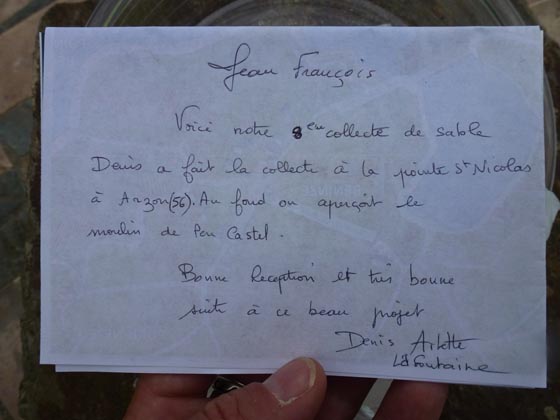 Jean François
Voici notre 8em collecte de sable
Denis a fait la collecte à la pointe St Nicolas
à Arzon (56). Au fond on aperçoit le
moulin de Pen Castel.
Bonne Reception et très bonne
suite à ce beau projet
Denis Arlette
La Fontaine